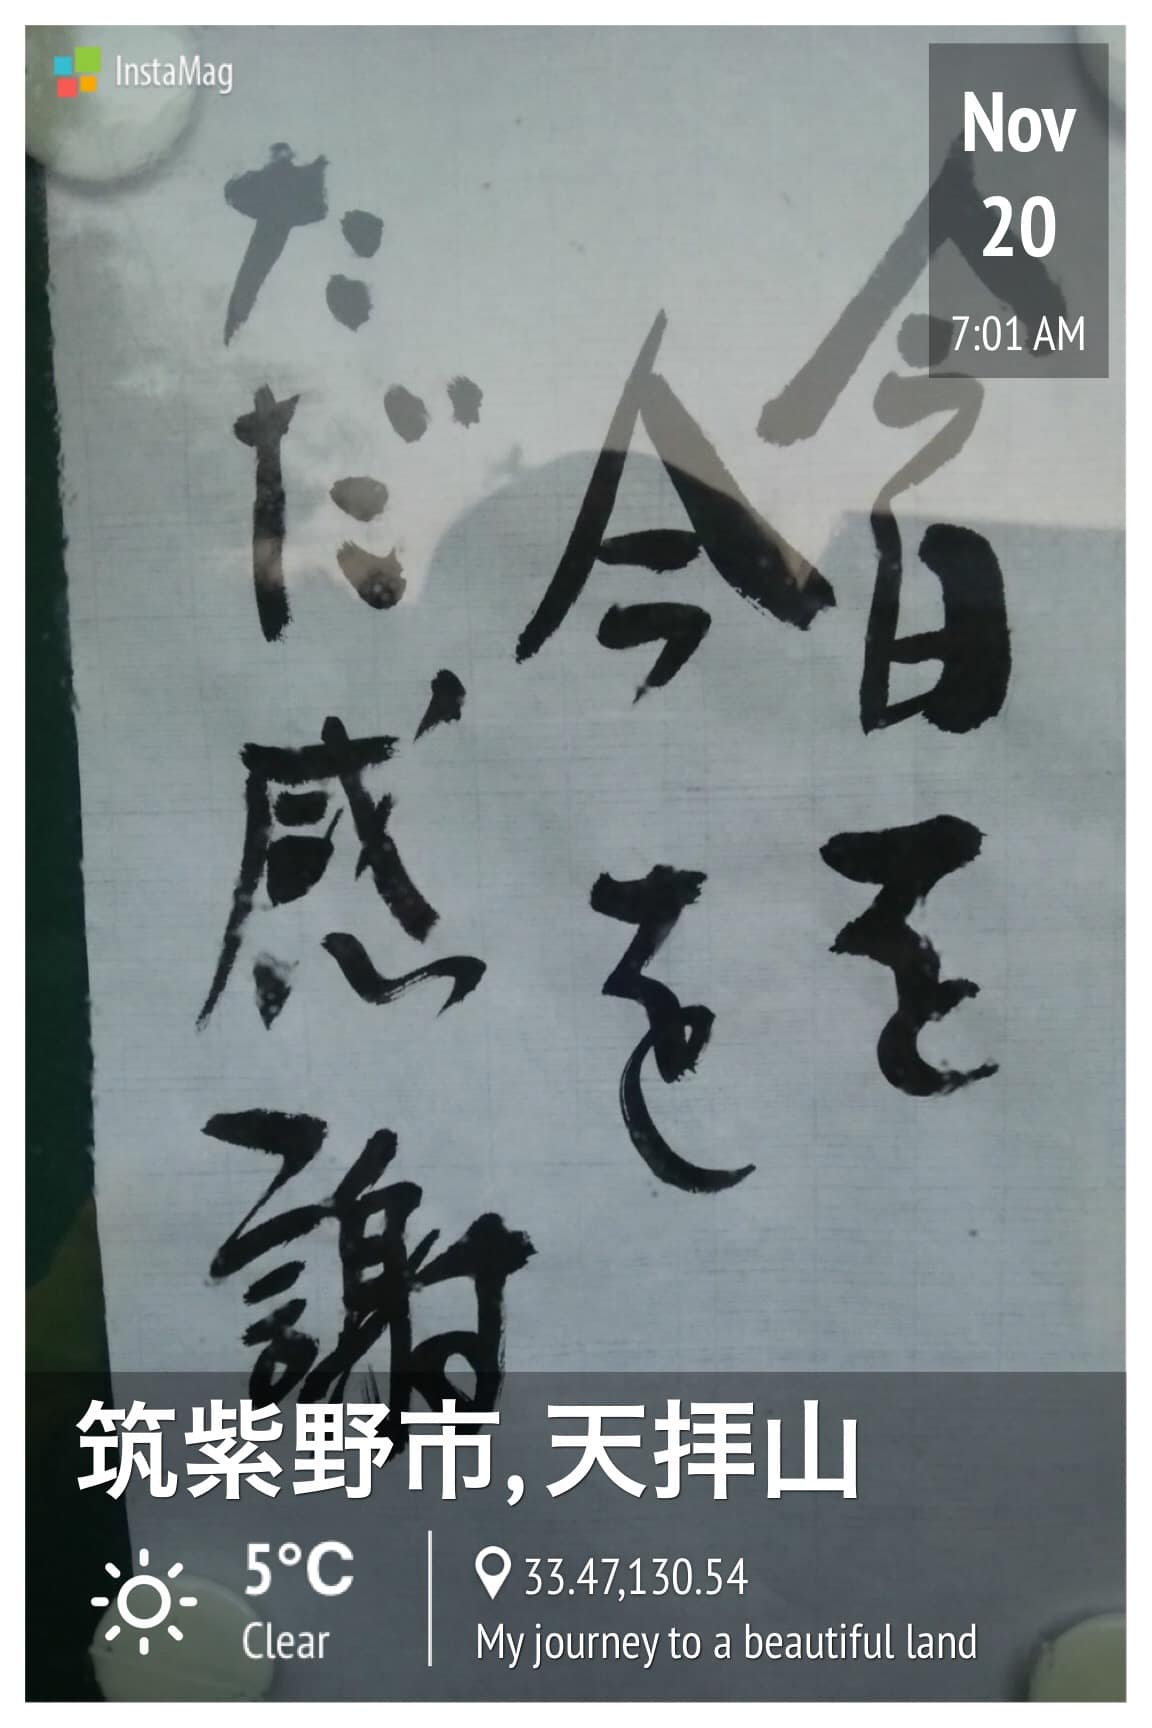 InstaMag
Nov
20
7:01 AM
今日を
今を
ただ感謝
筑紫野市, 天拝山
5°C
Clear
33.47,130.54
My journey to a beautiful land